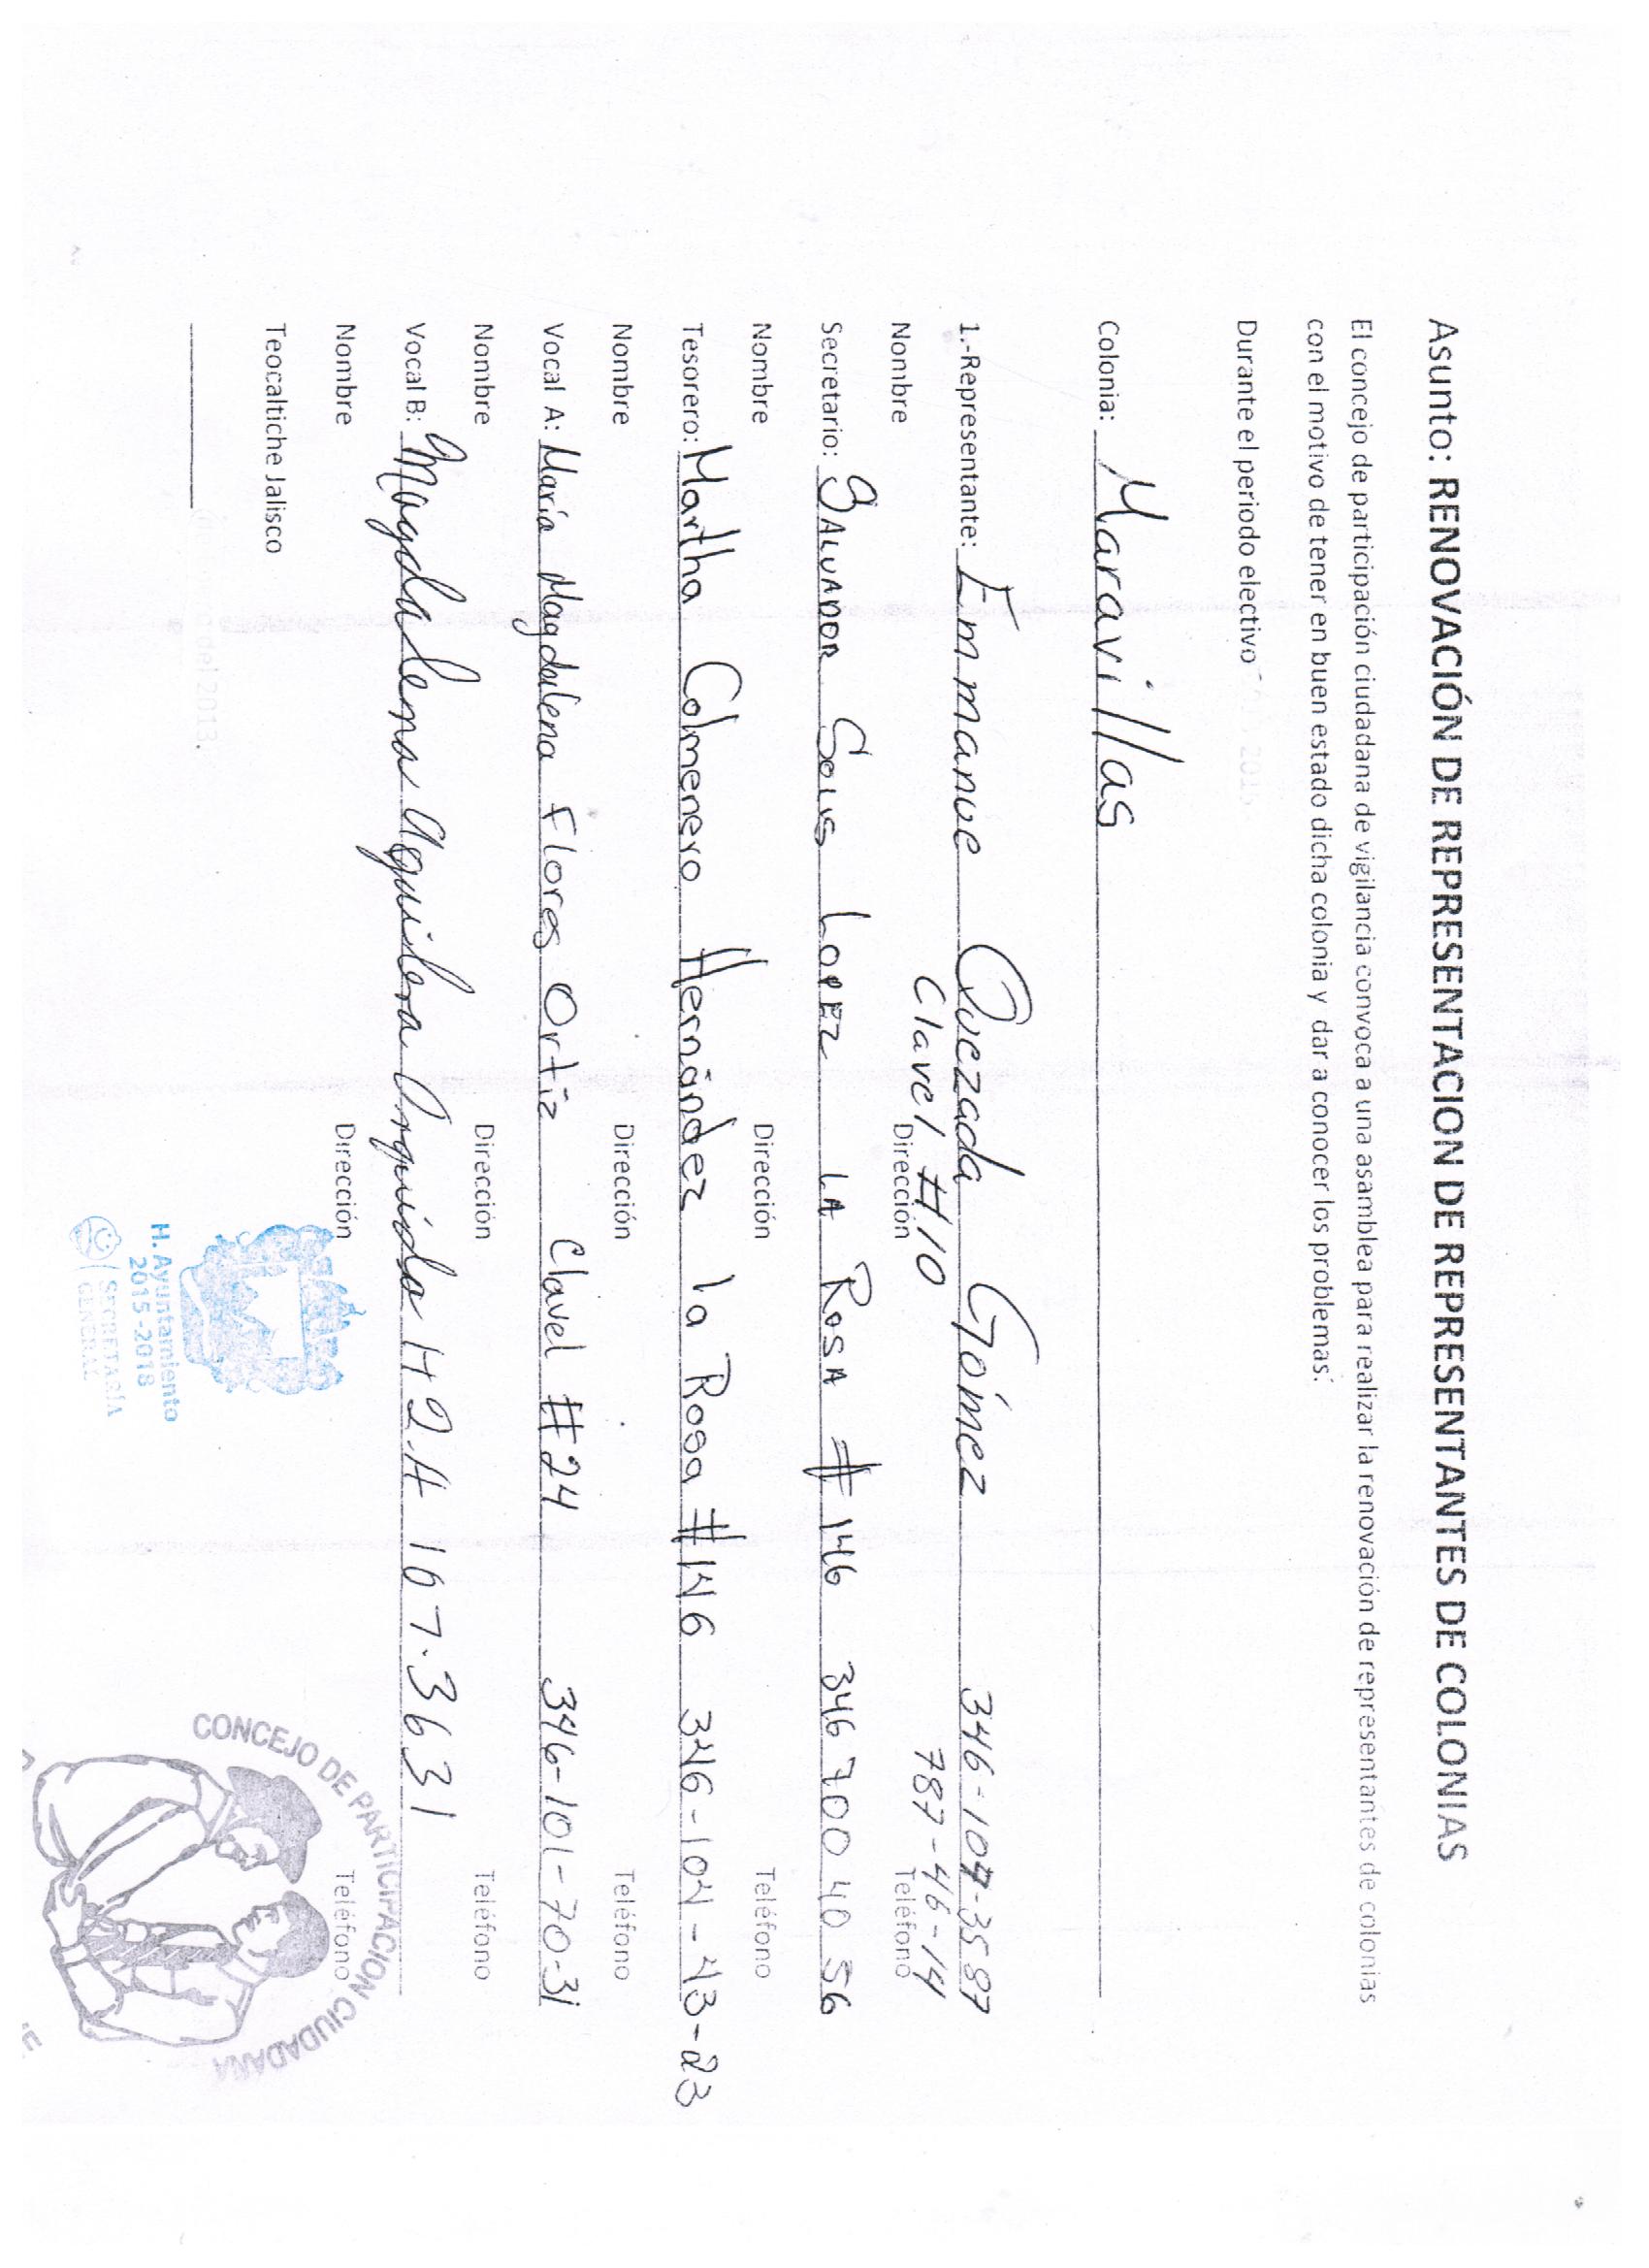 Asunto: RENOVACIÓN DE REPRESENTACION DE REPRESENTANTES DE COLONIAS
El concejo de participación ciudadana de vigilancia convoca a una asamblea para realizar la renovación de representantes de colonias
con el motivo de tener en buen estado dicha colonia y dar a conocer los problemas.
Durante el periodo electivo
Colonia: Maravillas
1.-Representante: Emmanue Quezada Gómez 346-107-35 87
Clavel #10 787-46-14
Nombre Dirección Teléfono
Secretario: SALVADOR SOLIS LOPEZ LA ROSA # 146 346 700 40 56
Nombre Dirección Teléfono
Tesorero: Martha Colmenero Hernández la Rosa #146 346-104-43-23
Nombre Dirección Teléfono
Vocal A: María Magdalena Flores Ortiz Clavel #24 346-101-70-31
Nombre Dirección Teléfono
Vocal B: Magdalena Aguilera Orquida # 2.A 107.3631
Nombre Dirección Teléfono
Teocaltiche Jalisco
del 2013.
H. Ayuntamiento
2015-2018
SECRETARÍA
GENERAL
CONCEJO DE PARTICIPACION CIUDADANA